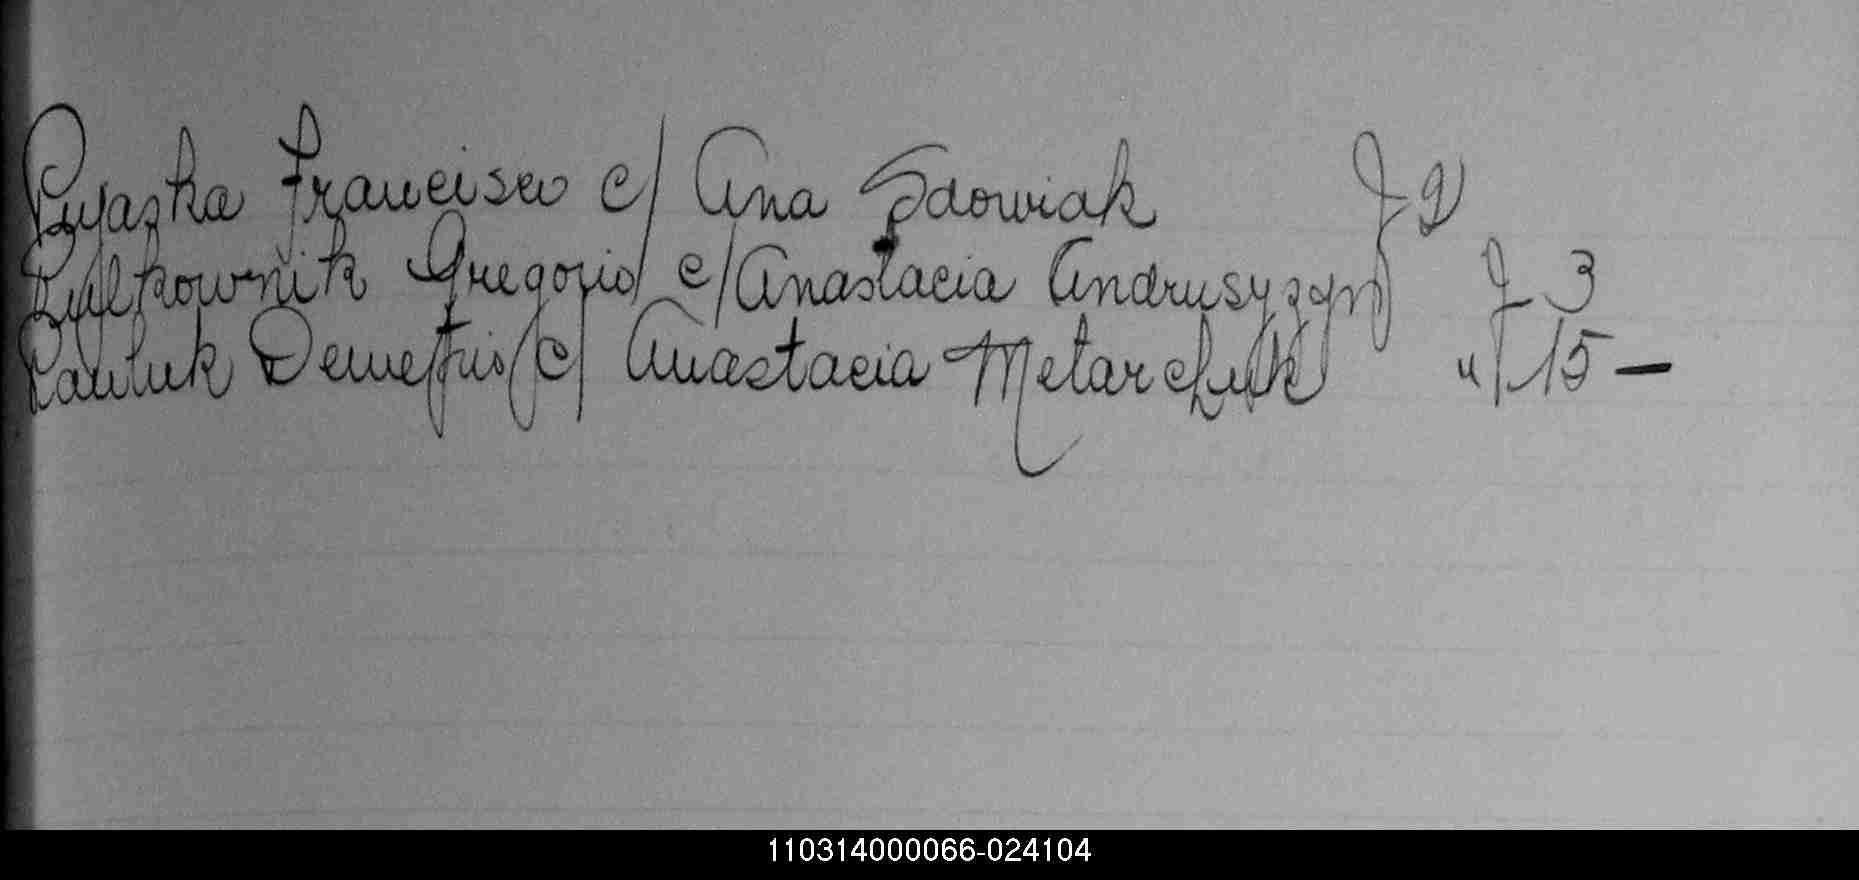 Pyaska Francisco c/ Ana Sdowiak f 2
Pylkownik Gregorio c/ Anastacia Andrusyzyn f 3
Pauluk Demetrio c/ Anastacia Metarchuk " 15 —
110314000066-024104